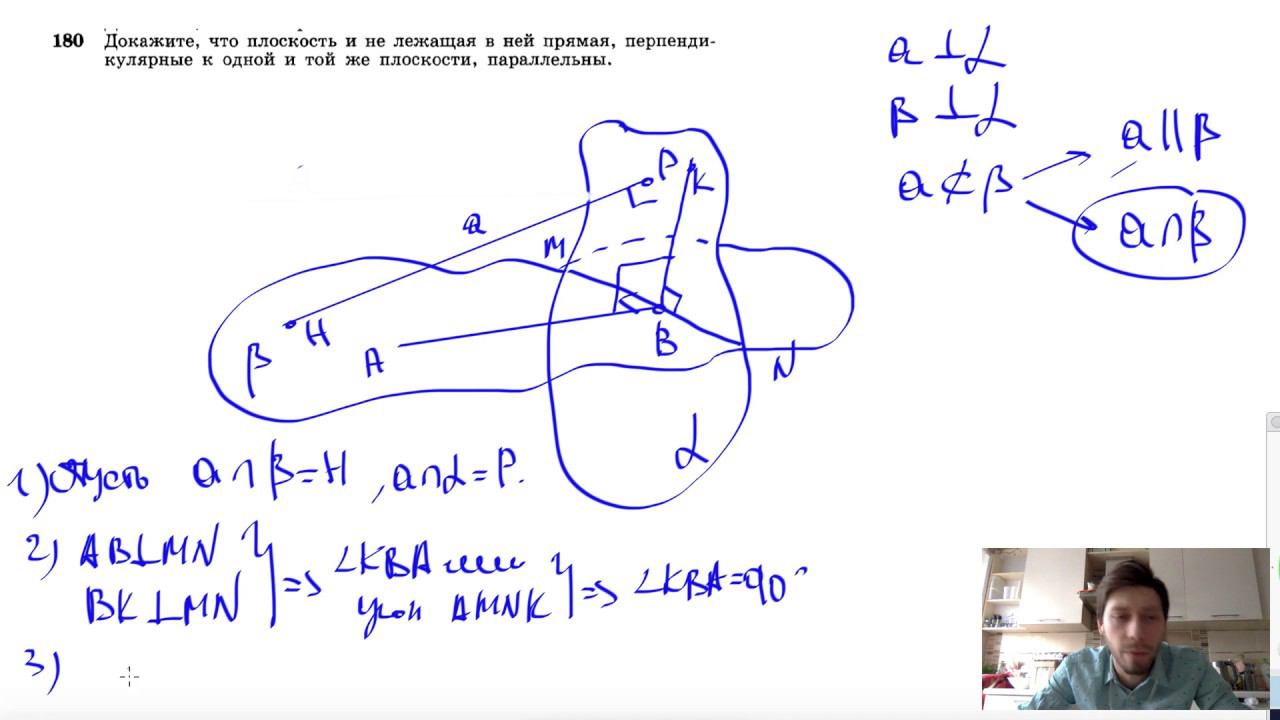 180 Докажите, что плоскость и не лежащая в ней прямая, перпенди-
кулярные к одной и той же плоскости, параллельны.
a ⊥ α
β ⊥ α
a ⊄ β
a || β
a ∩ β
P
K
a
M
H
A
B
β
N
α
1) Пусть a ∩ β = H , a ∩ α = P.
2) AB ⊥ MN
BK ⊥ MN
=> ∠KBA лин.
угол AMNK
=> ∠KBA = 90°
3)